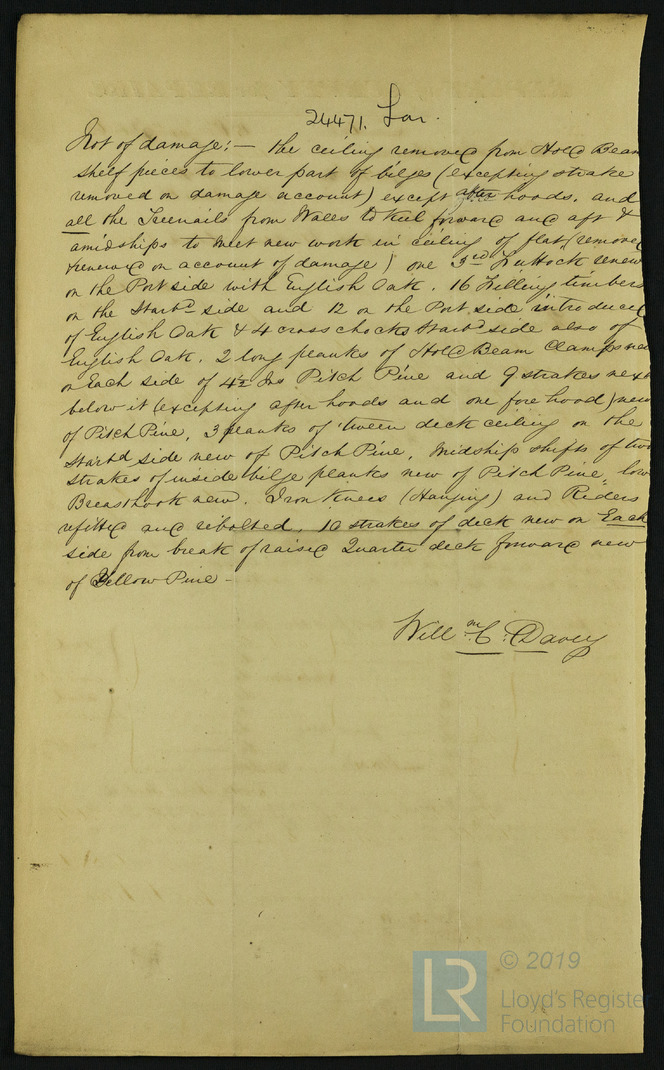 24471. Lon.
Not of damage:— the ceiling removed from Hold Beam
shelf pieces to lower part of bilges (excepting strake
removed on damage account) except after hoods. and
all the Treenails from Wales to Keel forward and aft &
amidships to meet new work in ceiling of flat (removed
& renewed on account of damage) one 3rd Futtock renew
on the Port side with English Oak. 16 Filling timbers
on the Starbd side and 12 on the Port side introduced
of English Oak & 4 cross chocks Starbd side also of
English Oak. 2 long planks of Hold Beam Clamps new
on Each side of 4½ Ins Pitch Pine and 9 strakes next
below it (excepting after hoods and one fore hood) new
of Pitch Pine, 3 planks of 'tween deck ceiling on the
Starbd side new of Pitch Pine, Midship shifts of two
strakes of inside bilge planks new of Pitch Pine, low
Breasthook new. Iron Knees (Hanging) and Riders
refitted and rebolted. 10 strakes of deck new on Each
side from break of raised Quarter deck forward new
of Yellow Pine –
Willm C. Davey
LR © 2019
Lloyd's Register
Foundation